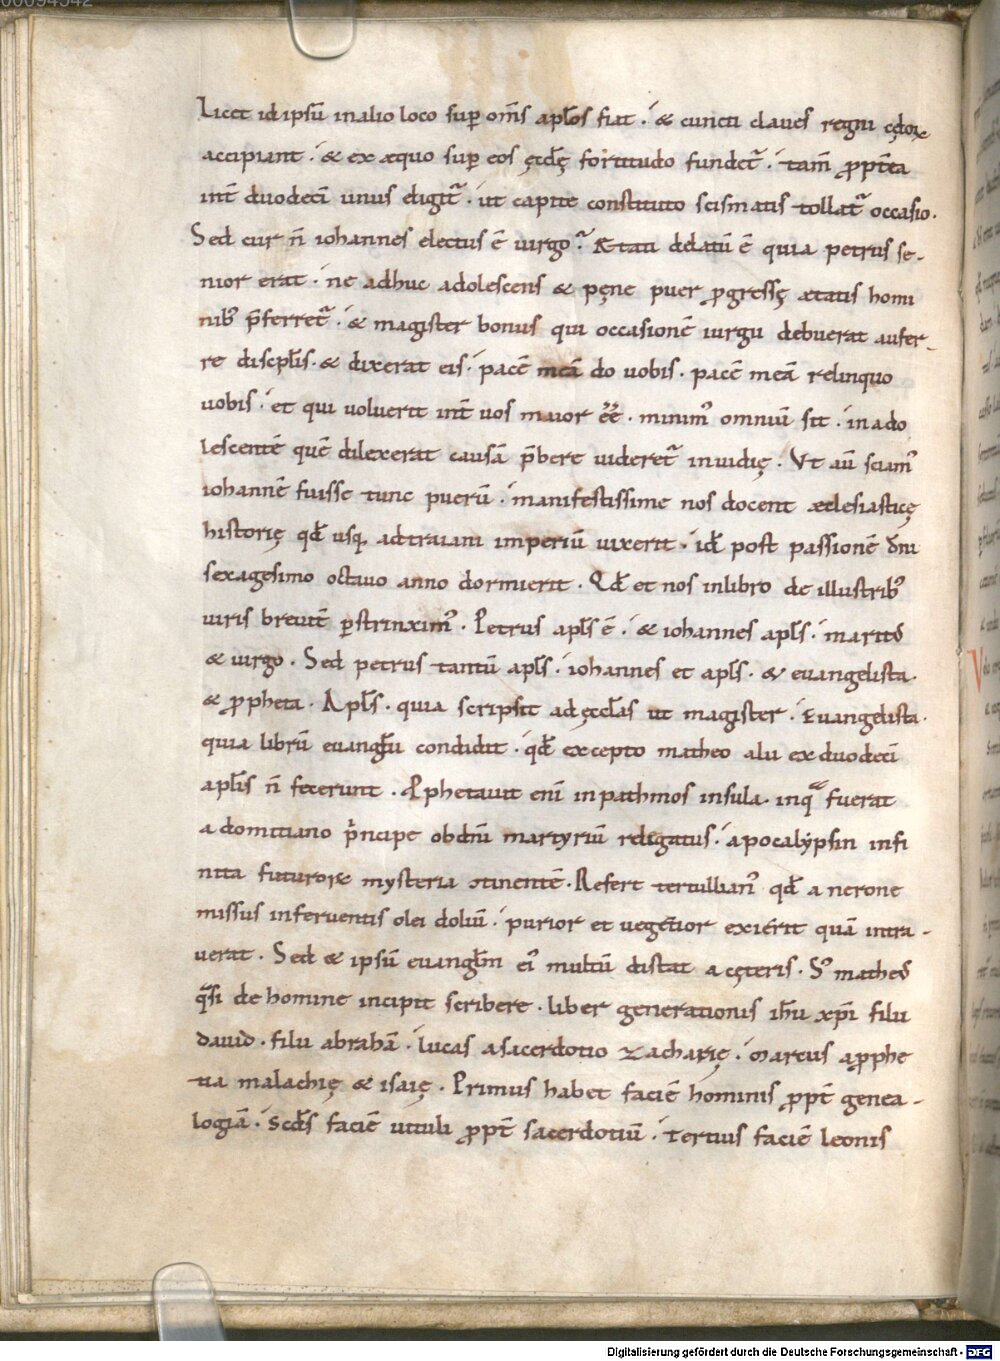 Licet id ipsū in alio loco sup̄ om̄s apl̄os fiat · & cuncti claues regni cęloꝝ
accipiant · & ex æquo sup̄ eos ęcl̄ę fortitudo fundet᷑ · tam̄ ꝓpt̄ea
int̄ duodeci unus eligit᷑ · ut capite constituto scismatis tollat᷑ occasio ·
Sed cur n̄ iohannes electus ē uirgo? Ætati delatū ē quia petrus se-
nior erat · ne adhuc adolescens & pęne puer ꝓgressę ætatis homi
nib; p̄ferret᷑ · & magister bonus qui occasionē iurgii debuerat aufer-
re discipl̄is · & dixerat eis · pacē meā do uobis · pacē meā relinquo
uobis · et qui uoluerit int̄ uos maior ēē · minim᷒ omniū sit · in ado
lescentē quē dilexerat causā p̄bere uideret᷑ inuidię · Vt aū sciam᷒
iohannē fuisse tunc puerū · manifestissime nos docent æclesiasticę
historię qd̄ usq; ad traiani imperiū uixerit · id̄ post passionē dn̄i
sexagesimo octauo anno dormierit · Qd̄ et nos in libro de illustrib;
uiris breuit̄ ꝑstrinxim᷒ · Petrus apl̄s ē · & iohannes apl̄s · marit᷒
& uirgo · Sed petrus tantū apl̄s · iohannes et apl̄s · & euangelista ·
& ꝓpheta · Apl̄s · quia scripsit ad ęccl̄as ut magister · Euangelista ·
quia librū euangl̄ii condidit · qd̄ excepto matheo alii ex duodeci
apl̄is n̄ fecerunt · Ꝓphetauit eni in pathmos insula · in qua fuerat
a domitiano p̄ncipe ob dn̄i martyriū religatus · apocalypsin infi
nita futuroꝝ mysteria ↄtinentē · Refert tertullian᷒ qd̄ a nerone
missus in feruentis olei doliū · purior et uegetior exierit quā intra-
uerat · Sed & ipsū euangl̄m ei᷒ multū distat a cęteris · S᷒ mathe᷒
q̄si de homine incipit scribere · liber generationis ih̄u xp̄i filii
dauid · filii abrahā · lucas a sacerdotio zacharię · marcus a ꝓphe
tia malachię & isaię · Primus habet faciē hominis ꝓpt̄ genea-
logiā · Scd̄s faciē uituli ꝓpt̄ sacerdotiū · Tertius faciē leonis
Digitalisierung gefördert durch die Deutsche Forschungsgemeinschaft - DFG